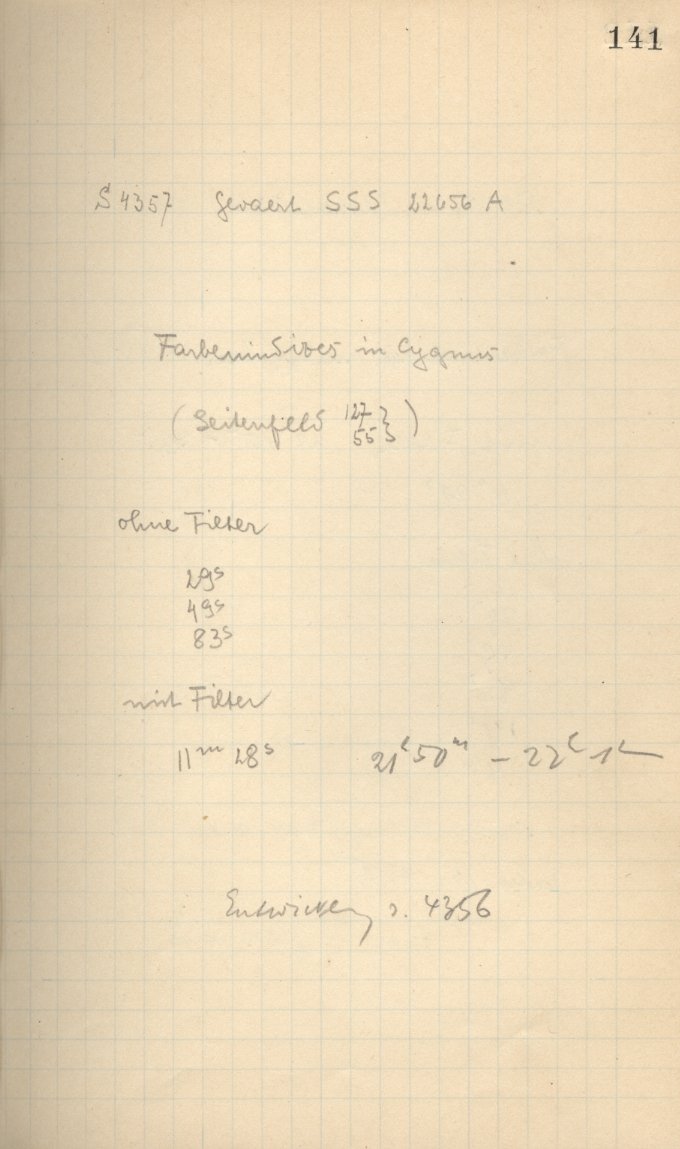 141
S 4357 Gevaert SSS 22656 A
Farbenindizes in Cygnus
(Seitenfeld 127
55)
ohne Filter
29s
49s
83s
mit Filter
11m 28s 21h 50m – 22h 1m
Entwicklung s. 4356